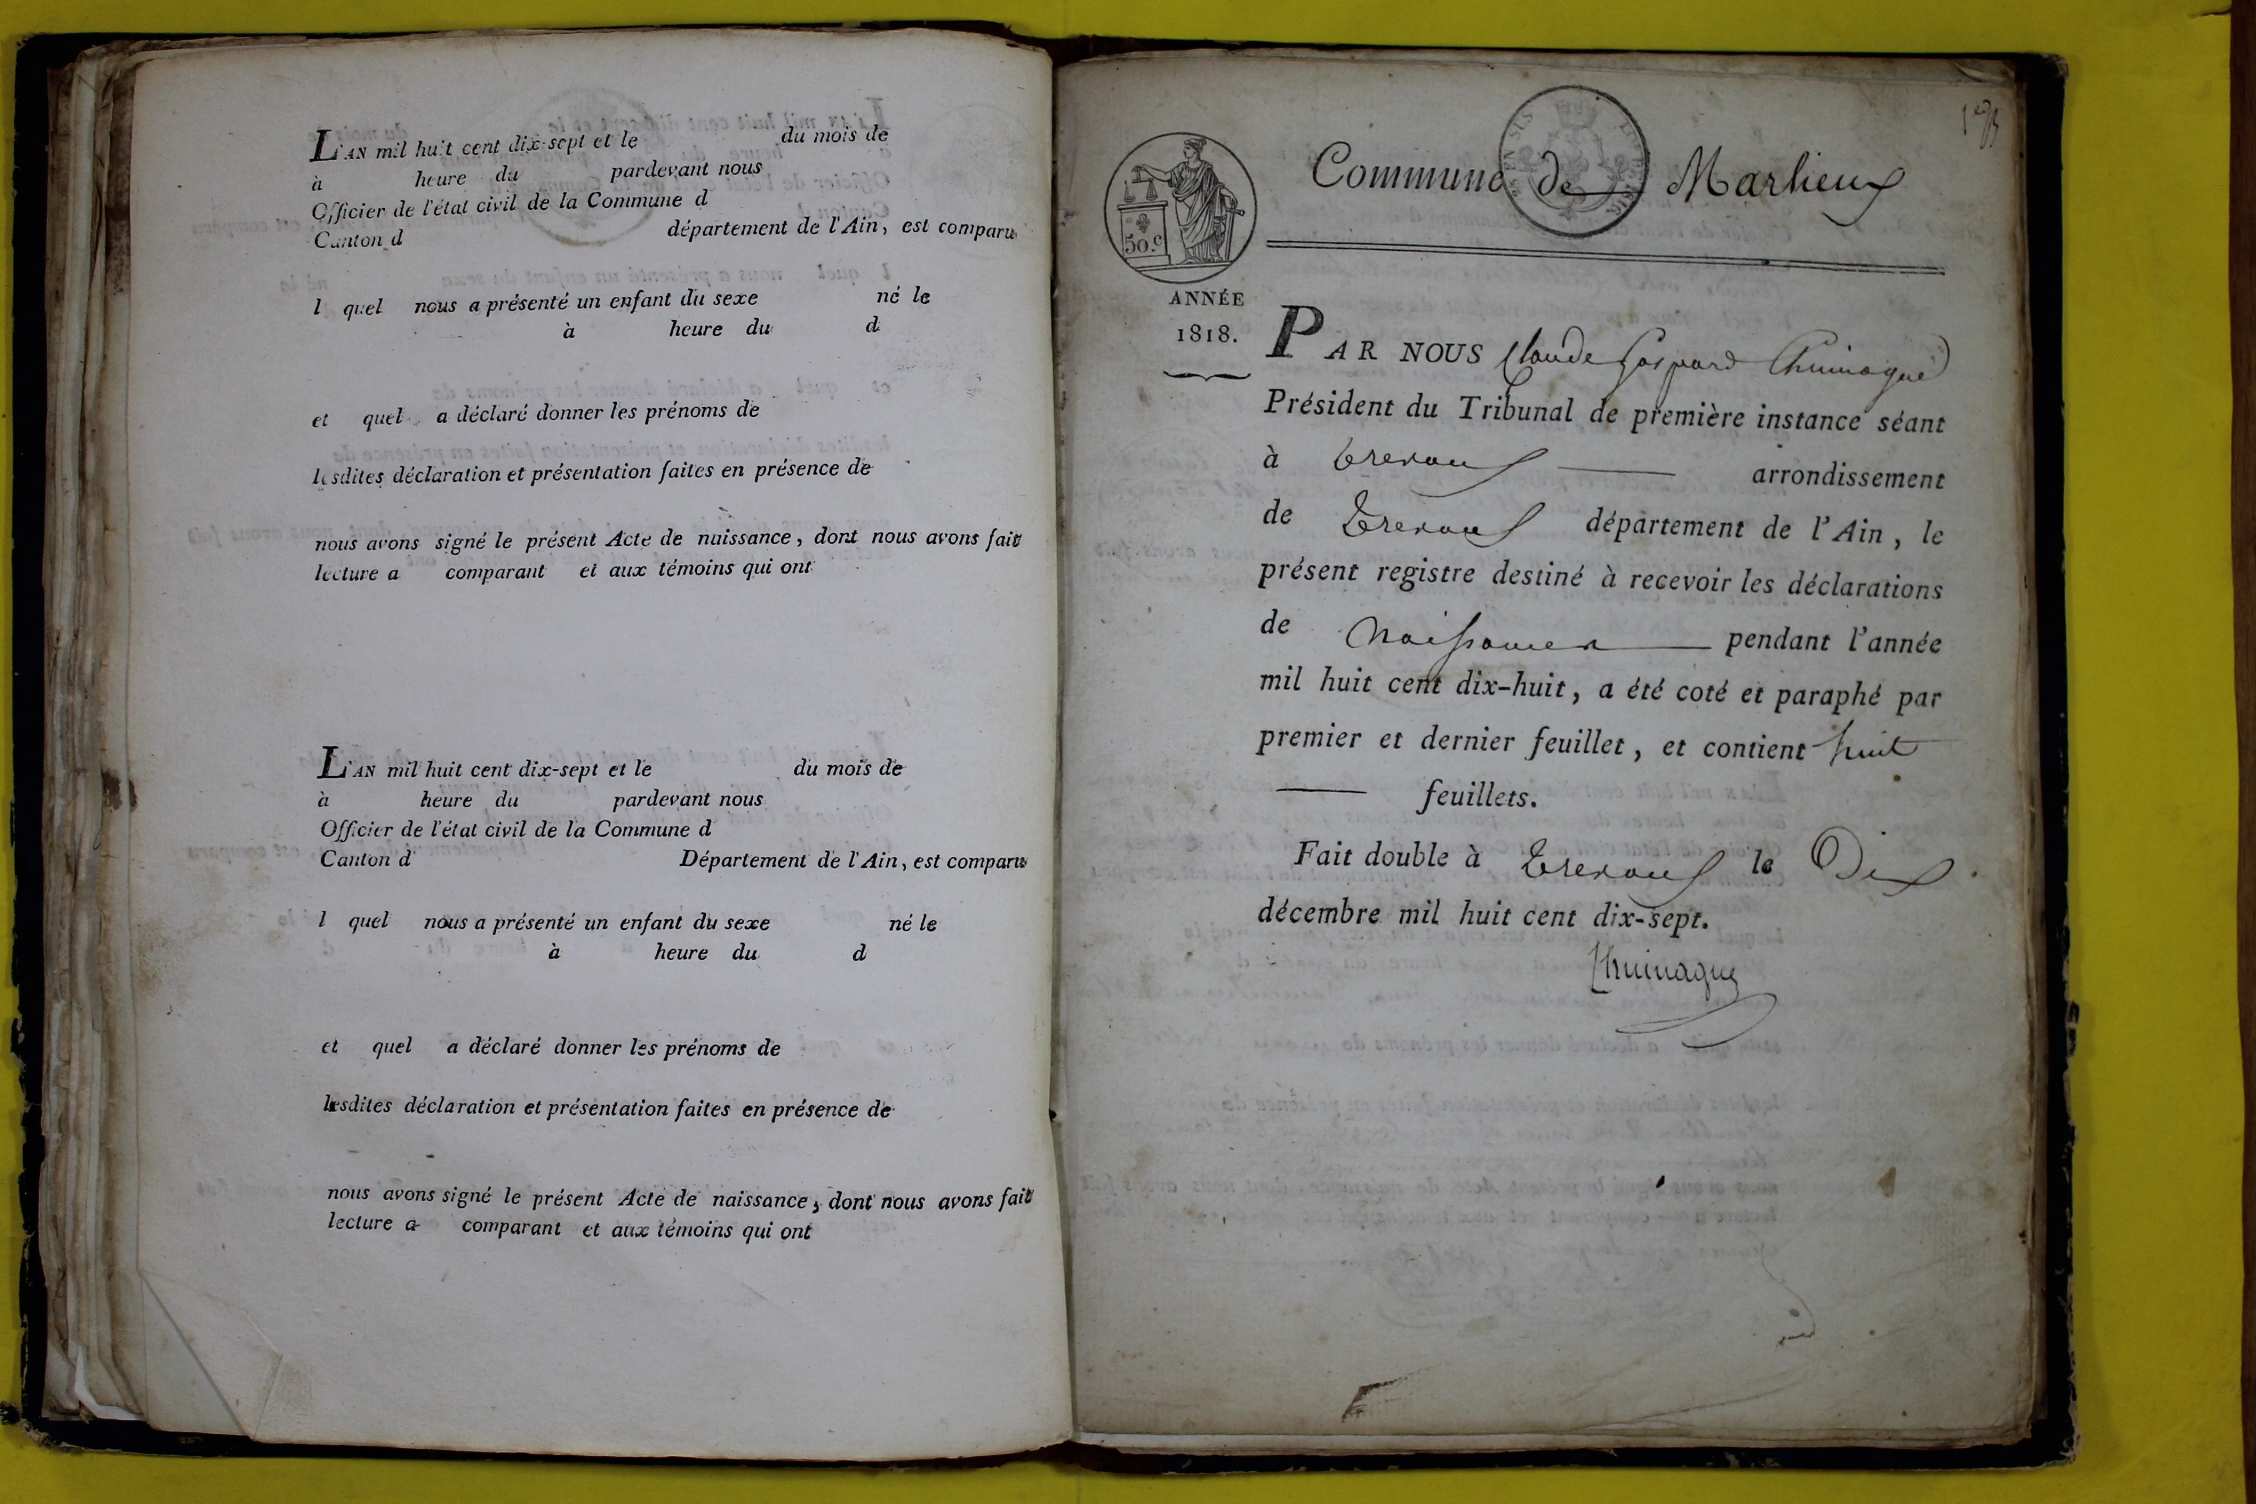 L'AN mil huit cent dix-sept et le du mois de
à heure du pardevant nous
Officier de l'état civil de la Commune d
Canton d département de l'Ain, est comparu
l quel nous a présenté un enfant du sexe né le
à heure du d
et quel a déclaré donner les prénoms de
lesdites déclaration et présentation faites en présence de
nous avons signé le présent Acte de naissance, dont nous avons fait
lecture a comparant et aux témoins qui ont
L'AN mil huit cent dix-sept et le du mois de
à heure du pardevant nous
Officier de l'état civil de la Commune d
Canton d Département de l'Ain, est comparu
l quel nous a présenté un enfant du sexe né le
à heure du d
et quel a déclaré donner les prénoms de
lesdites déclaration et présentation faites en présence de
nous avons signé le présent Acte de naissance, dont nous avons fait
lecture a comparant et aux témoins qui ont
Commune de Marlieux
50.c
ANNÉE
1818.
PAR NOUS Claude Gaspard Chuinague
Président du Tribunal de première instance séant
à trevoux arrondissement
de trevoux département de l'Ain, le
présent registre destiné à recevoir les déclarations
de Naissances pendant l'année
mil huit cent dix-huit, a été coté et paraphé par
premier et dernier feuillet, et contient huit
feuillets.
Fait double à trevoux le Dix
décembre mil huit cent dix-sept.
Chuinague